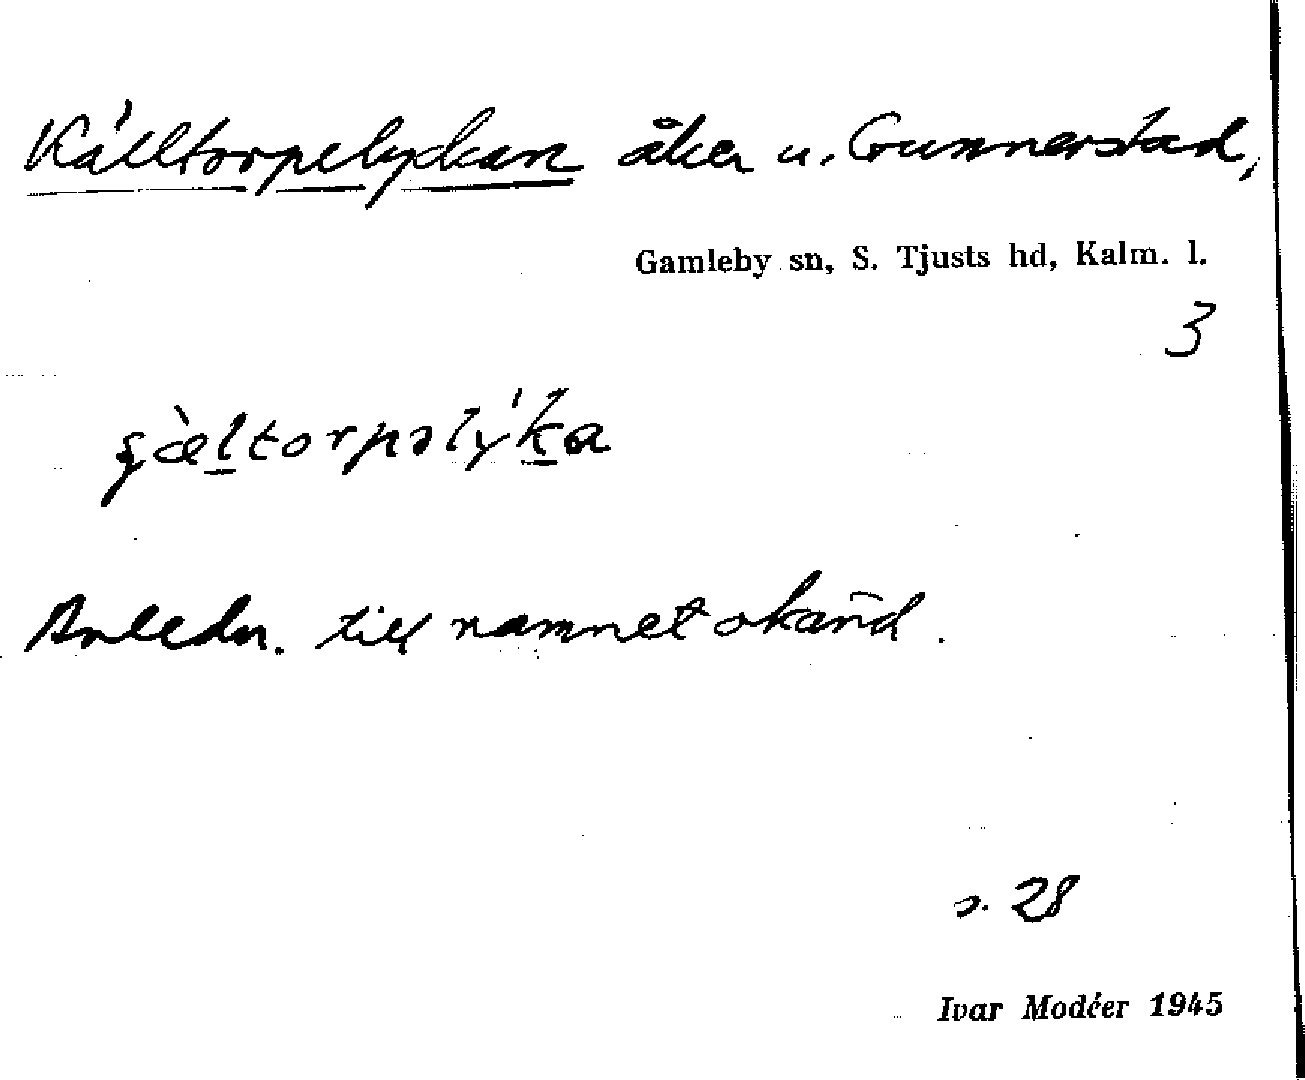 Källtorpelyckan åker u. Gunnerstad,
Gamleby sn, S. Tjusts hd, Kalm. l.
3
ʂæ̀l̠torpəlýk̠a
Anledn. till namnet okänd.
s. 28
Ivar Modéer 1945